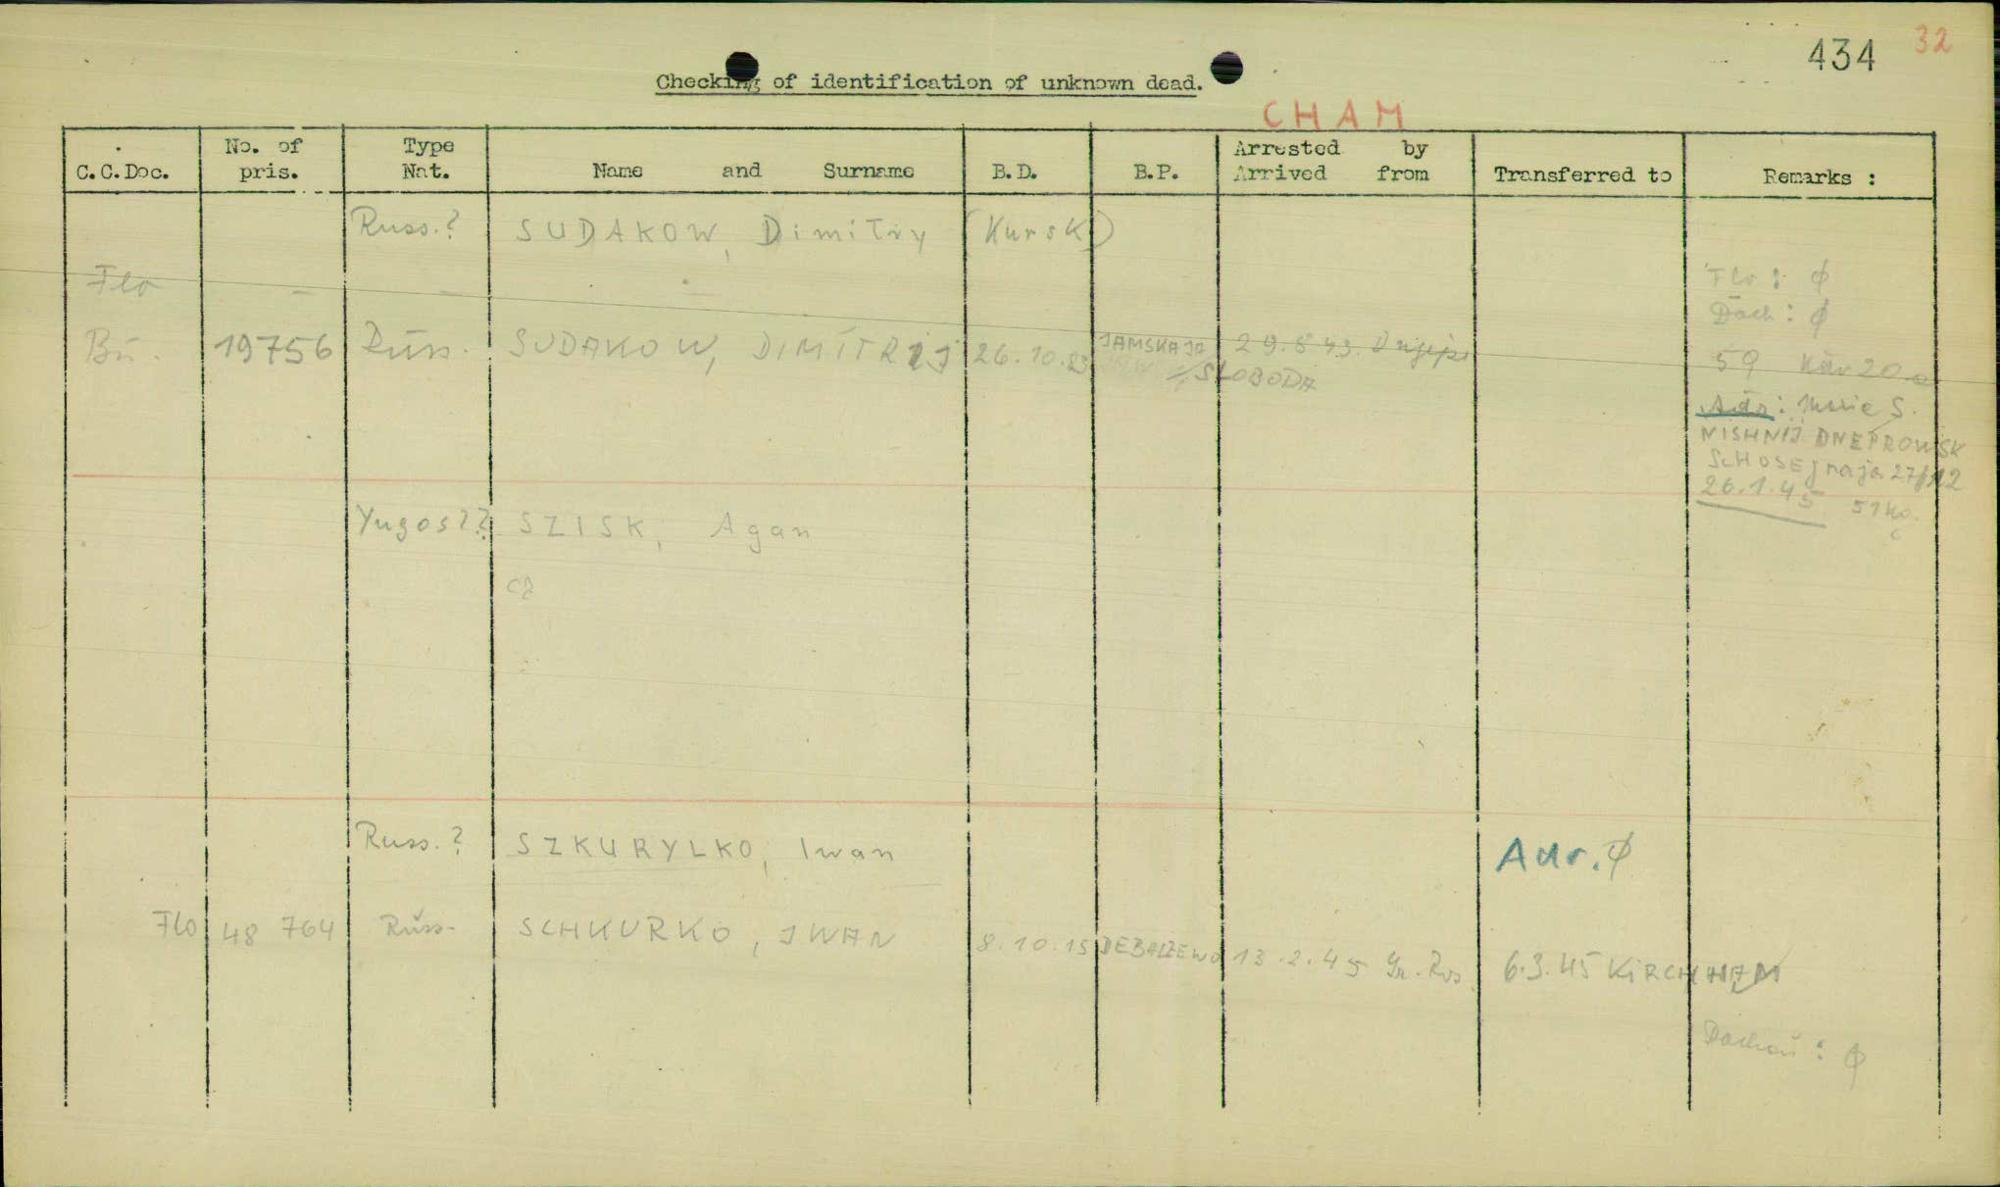 434 32
Checking of identification of unknown dead.
CHAM
C.C.Doc. No. of pris. Type Nat. Name and Surname B.D. B.P. Arrested by Arrived from Transferred to Remarks :
Russ.? SUDAKOW, Dimitry (Kursk)
Flo — — — Flo : ϕ
Dach : ϕ
Bu. 19756 Russ. SUDAKOW, DIMITRIJ 26.10.23 JAMSKAJA SLOBODA 29.8.43.
59
Adr: Marie S.
NISHNIJ DNEPROWSK
26.1.45
Yugos?? SZISK, Agan
Russ.? SZKURYLKO, Iwan Adr. ϕ
Flo 48 764 Russ- SCHKURKO, IWAN 8.10.15 DEBALZEWO 13.2.45 Gr. Ros 6.3.45 KIRCHHAM
Dachau : ϕ